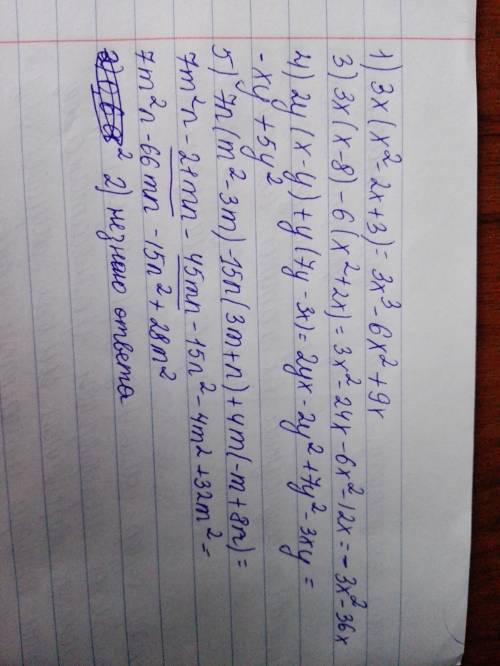 1) 3x(x²-2x+3)=3x³-6x²+9x
3) 3x(x-8)-6(x²+2x)=3x²-24x-6x²-12x=-3x²-36x
4) 2y(x-y)+y(7y-3x)=2yx-2y²+7y²-3xy=
-xy+5y²
5) 7n(m²-3m)-15n(3m+n)+4m(-m+8n)=
7m²n-21mn-45mn-15n²-4m²+32m²=
7m²n-66mn-15n²+28m²
2) незнаю ответа